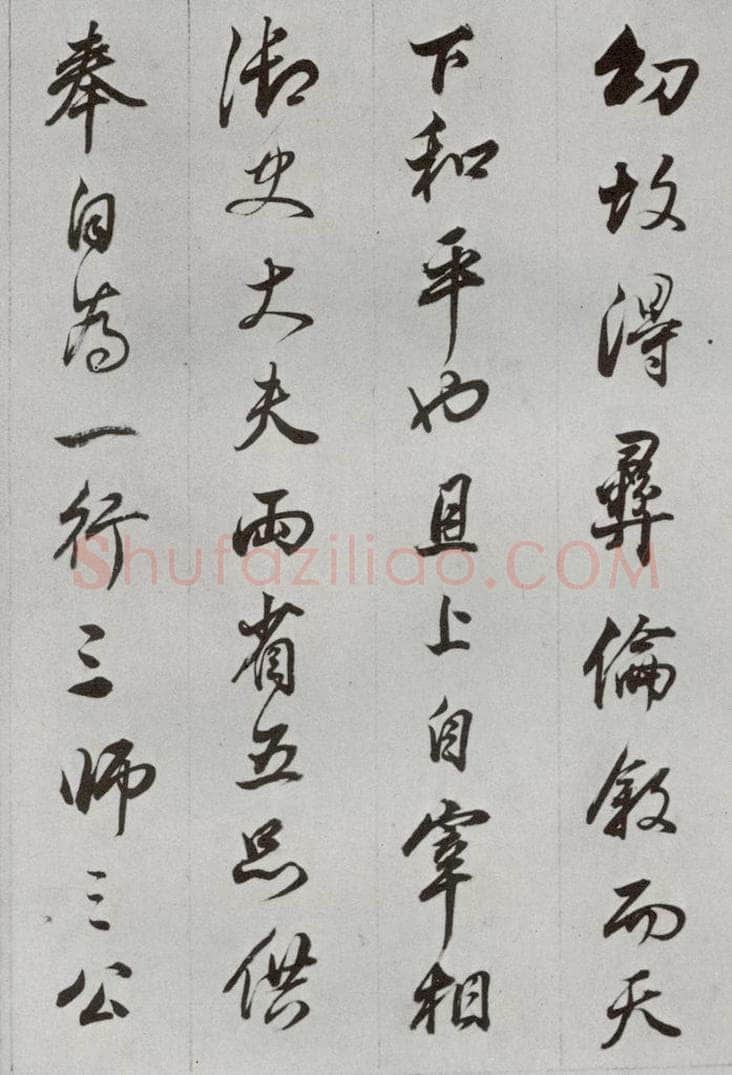 幼故得彝倫敘而天
下和平也且上自宰相
御史大夫兩省五品供
奉自為一行三師三公
Shufaziliao.COM